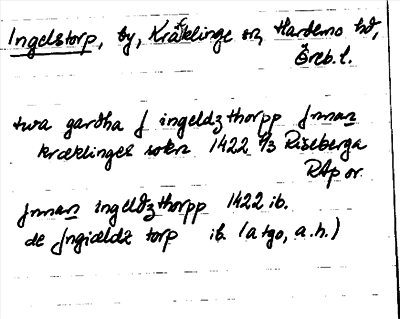 Ingelstorp, by, Kräcklinge sn, Hardemo hd,
Öreb. l.
twa gardha j ingeldzthorpp jnnan
kræklinges sokn 1422 7/3 Riseberga
RAp or.
jnnan ingeldzthorpp 1422 ib.
de jngiældz torp ib. (a tgo, a.h.)